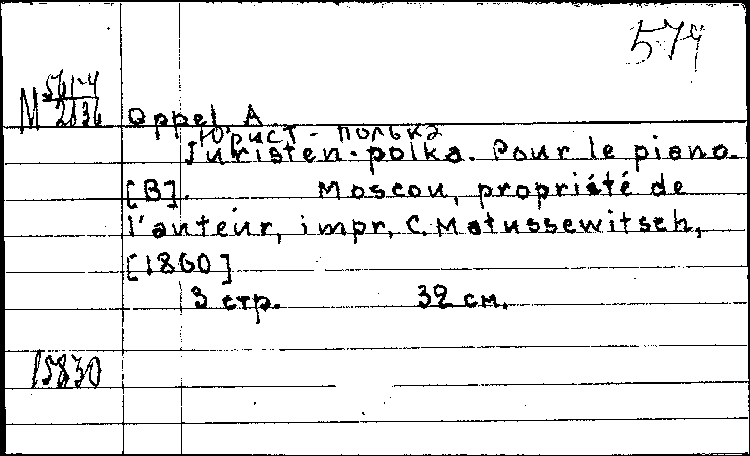 574
М 561-4
2136
Oppel A
Юрист - полька
Juristen-polka. Pour le piano.
[B]. Moscou, propriété de
l'auteur, impr. C. Matussewitsch,
[1860]
3 стр. 32 см.
15830